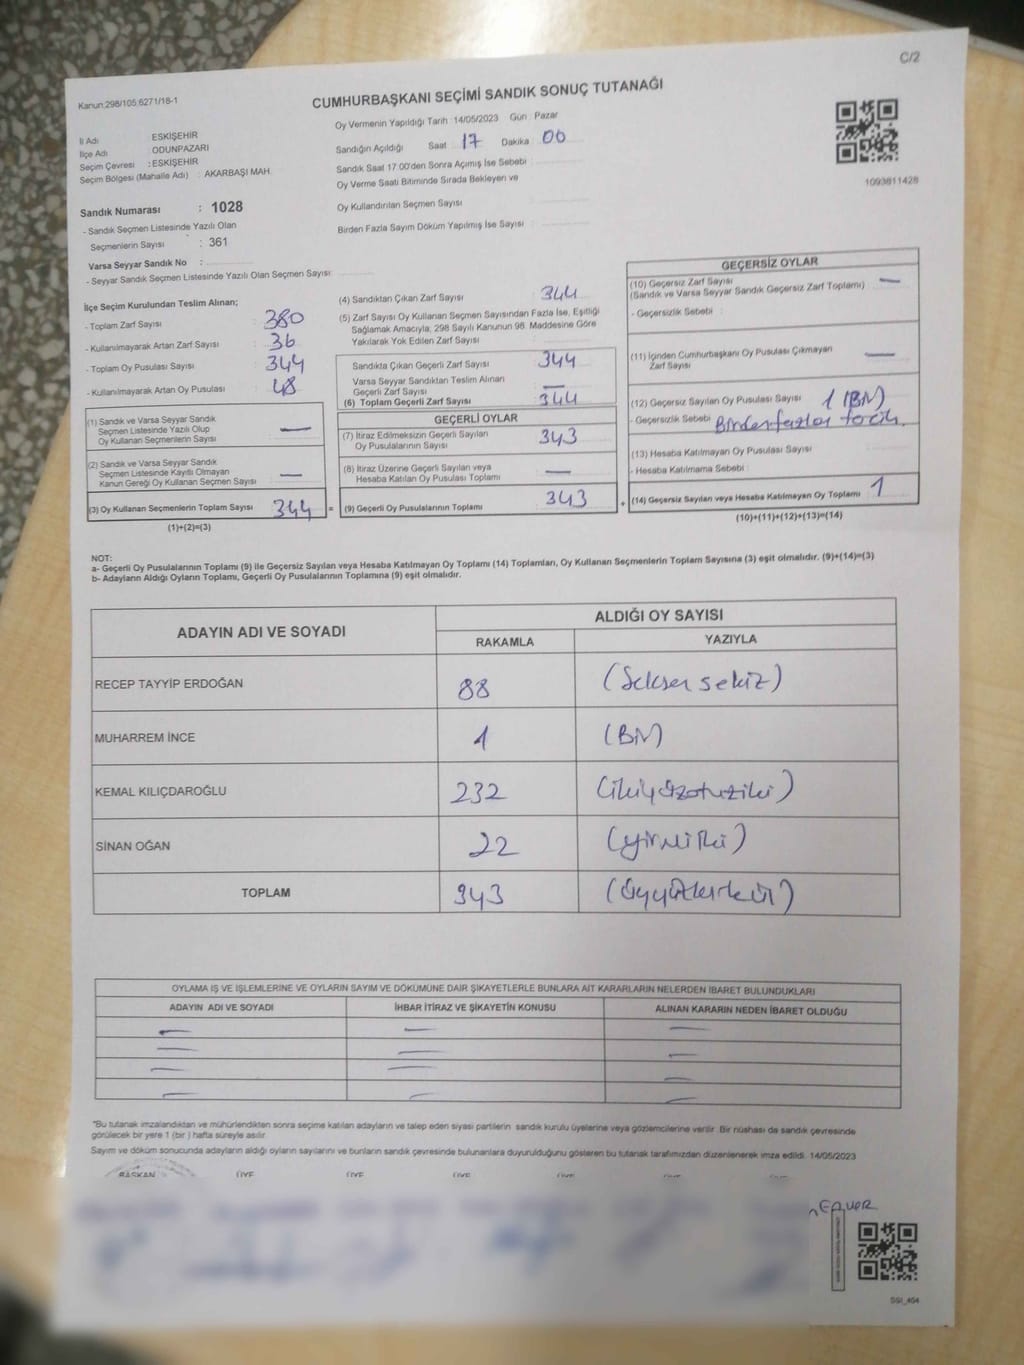 C/2
Kanun;298/105;6271/18-1
CUMHURBAŞKANI SEÇİMİ SANDIK SONUÇ TUTANAĞI
İl Adı : ESKİŞEHİR
İlçe Adı : ODUNPAZARI
Seçim Çevresi : ESKİŞEHİR
Seçim Bölgesi (Mahalle Adı) : AKARBAŞI MAH.
Sandık Numarası : 1028
- Sandık Seçmen Listesinde Yazılı Olan
Seçmenlerin Sayısı : 361
Varsa Seyyar Sandık No :
- Seyyar Sandık Seçmen Listesinde Yazılı Olan Seçmen Sayısı:
Oy Vermenin Yapıldığı Tarih : 14/05/2023 Gün : Pazar
Sandığın Açıldığı Saat 17 Dakika 00
Sandık Saat 17.00'den Sonra Açımış İse Sebebi :
Oy Verme Saati Bitiminde Sırada Bekleyen ve
Oy Kullandırılan Seçmen Sayısı :
Birden Fazla Sayım Döküm Yapılmış İse Sayısı :
1093811428
İlçe Seçim Kurulundan Teslim Alınan;
- Toplam Zarf Sayısı : 380
- Kullanılmayarak Artan Zarf Sayısı : 36
- Toplam Oy Pusulası Sayısı : 344
- Kullanılmayarak Artan Oy Pusulası : 48
(1) Sandık ve Varsa Seyyar Sandık
Seçmen Listesinde Yazılı Olup
Oy Kullanan Seçmenlerin Sayısı : —
(2) Sandık ve Varsa Seyyar Sandık
Seçmen Listesinde Kayıtlı Olmayan
Kanun Gereği Oy Kullanan Seçmen Sayısı : —
(3) Oy Kullanan Seçmenlerin Toplam Sayısı : 344 =
(1)+(2)=(3)
(4) Sandıktan Çıkan Zarf Sayısı : 344
(5) Zarf Sayısı Oy Kullanan Seçmen Sayısından Fazla İse, Eşitliği
Sağlamak Amacıyla, 298 Sayılı Kanunun 98. Maddesine Göre
Yakılarak Yok Edilen Zarf Sayısı :
Sandıkta Çıkan Geçerli Zarf Sayısı : 344
Varsa Seyyar Sandıktan Teslim Alınan
Geçerli Zarf Sayısı : —
(6) Toplam Geçerli Zarf Sayısı : 344
GEÇERLİ OYLAR
(7) İtiraz Edilmeksizin Geçerli Sayılan
Oy Pusulasının Sayısı : 343
(8) İtiraz Üzerine Geçerli Sayılan veya
Hesaba Katılan Oy Pusulası Toplamı : —
(9) Geçerli Oy Pusulalarının Toplamı : 343 +
GEÇERSİZ OYLAR
(10) Geçersiz Zarf Sayısı : —
(Sandık ve Varsa Seyyar Sandık Geçersiz Zarf Toplamı)
- Geçersizlik Sebebi :
(11) İçinden Cumhurbaşkanı Oy Pusulası Çıkmayan
Zarf Sayısı : —
(12) Geçersiz Sayılan Oy Pusulası Sayısı : 1 (BİR)
- Geçersizlik Sebebi : Birden fazla tercih.
(13) Hesaba Katılmayan Oy Pusulası Sayısı :
- Hesaba Katılmama Sebebi :
(14) Geçersiz Sayılan veya Hesaba Katılmayan Oy Toplamı : 1
(10)+(11)+(12)+(13)=(14)
NOT:
a- Geçerli Oy Pusulasının Toplamı (9) ile Geçersiz Sayılan veya Hesaba Katılmayan Oy Toplamı (14) Toplamları, Oy Kullanan Seçmenlerin Toplam Sayısına (3) eşit olmalıdır. (9)+(14)=(3)
b- Adayların Aldığı Oyların Toplamı, Geçerli Oy Pusulalarının Toplamına (9) eşit olmalıdır.
ADAYIN ADI VE SOYADI
ALDIĞI OY SAYISI
RAKAMLA YAZIYLA
RECEP TAYYİP ERDOĞAN 88 (Seksen sekiz)
MUHARREM İNCE 1 (BİR)
KEMAL KILIÇDAROĞLU 232 (ikiyüzotuziki)
SİNAN OĞAN 22 (yirmi iki)
TOPLAM 343 (Üçyüzkırküç)
OYLAMA İŞ VE İŞLEMLERİNE VE OYLARIN SAYIM VE DÖKÜMÜNE DAİR ŞİKAYETLERLE BUNLARA AİT KARARLARIN NELERDEN İBARET BULUNDUKLARI
ADAYIN ADI VE SOYADI İHBAR İTİRAZ VE ŞİKAYETİN KONUSU ALINAN KARARIN NEDEN İBARET OLDUĞU
"Bu tutanak imzalandıktan ve mühürlendikten sonra seçime katılan adayların ve talep eden siyasi partilerin sandık kurulu üyelerine veya gözlemcilerine verilir. Bir nüshası da sandık çevresinde
görülecek bir yere 1 (bir ) hafta süreyle asılır.
Sayım ve döküm sonucunda adayların aldığı oyların sayılarını ve bunların sandık çevresinde bulunanlara duyurulduğunu gösteren bu tutanak tarafımızdan düzenlenerek imza edildi. 14/05/2023
BAŞKAN ÜYE ÜYE ÜYE ÜYE